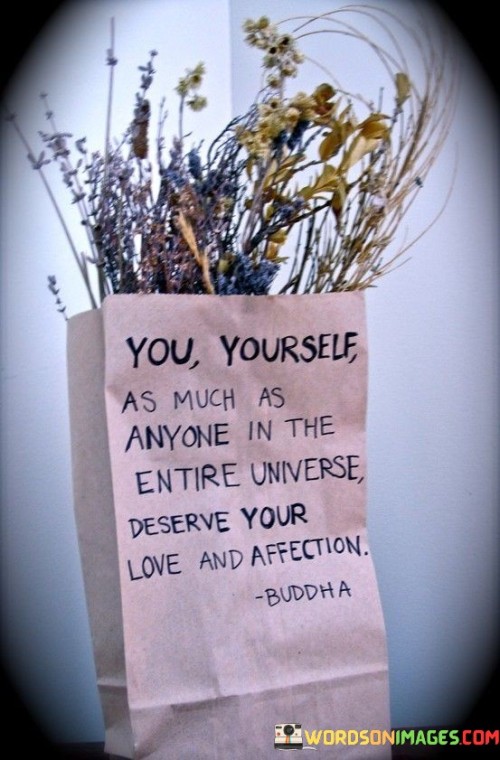 YOU, YOURSELF,
AS MUCH AS
ANYONE IN THE
ENTIRE UNIVERSE,
DESERVE YOUR
LOVE AND AFFECTION.
-BUDDHA
WORDSONIMAGES.COM